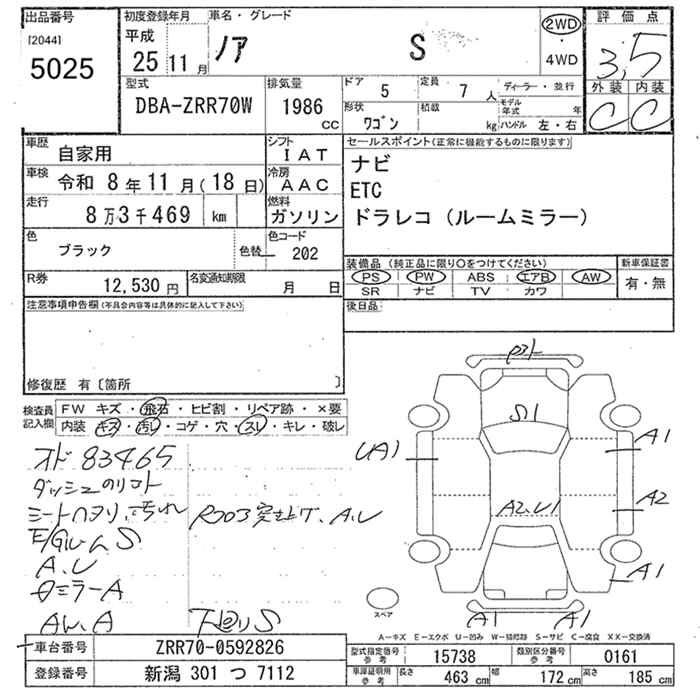 出品番号 初度登録年月 車名・グレード 評価点
[2044] 平成 ノア S 2WD・4WD 3.5
5025 25 11月 外装 内装
型式 排気量 ドア 5 定員 7人 ディーラー・並行 C C
DBA-ZRR70W 1986 cc 形状 ワゴン 積載 kg モデル年式 年 ハンドル 左・右
車歴 自家用 シフト IAT セールスポイント(正常に機能するものに限ります)
車検 令和 8年11月(18日) 冷房 AAC ナビ
ETC
走行 8万3千469 km 燃料 ガソリン ドラレコ(ルームミラー)
色 ブラック 色替 色コード 202
装備品(純正品に限り○をつけてください) 新車保証書
R券 12,530円 名変通知期限 月 日 PS PW ABS エアB AW 有・無
SR ナビ TV カワ
注意事項申告欄(不具合内容等は具体的に記入して下さい) 後日品
修復歴 有〔箇所 〕
検査員記入欄 FW キズ・飛石・ヒビ割・リペア跡・×要
内装 キズ・汚レ・コゲ・穴・スレ・キレ・破レ
S1
オド 83465 UA1 A1
A2
A2.U1
A.U
A1
A1 A1
AW.A 下回りS
スペア
A-キズ E-エクボ U-凹み W-補修跡 S-サビ C-腐食 XX-交換済
車台番号 ZRR70-0592826
型式指定番号 参考 15738 類別区分番号 参考 0161
登録番号 新潟 301 つ 7112
車庫証明用 参考 長さ 463 cm 幅 172 cm 高さ 185 cm